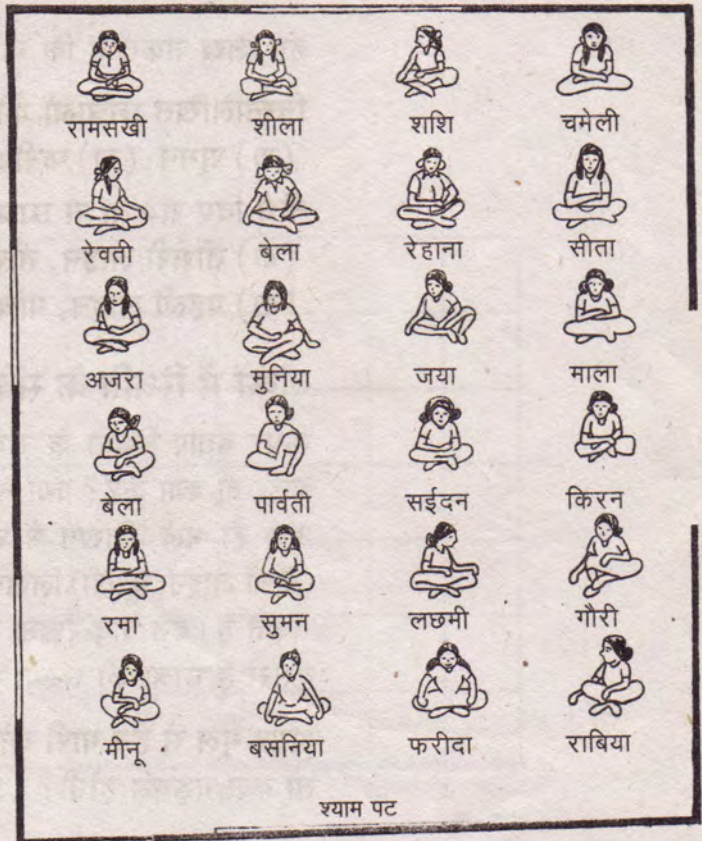 रामसखी शीला शशि चमेली
रेवती बेला रेहाना सीता
अजरा मुनिया जया माला
बेला पार्वती सईदन किरन
रमा सुमन लछमी गौरी
मीनू बसनिया फरीदा राबिया
श्याम पट